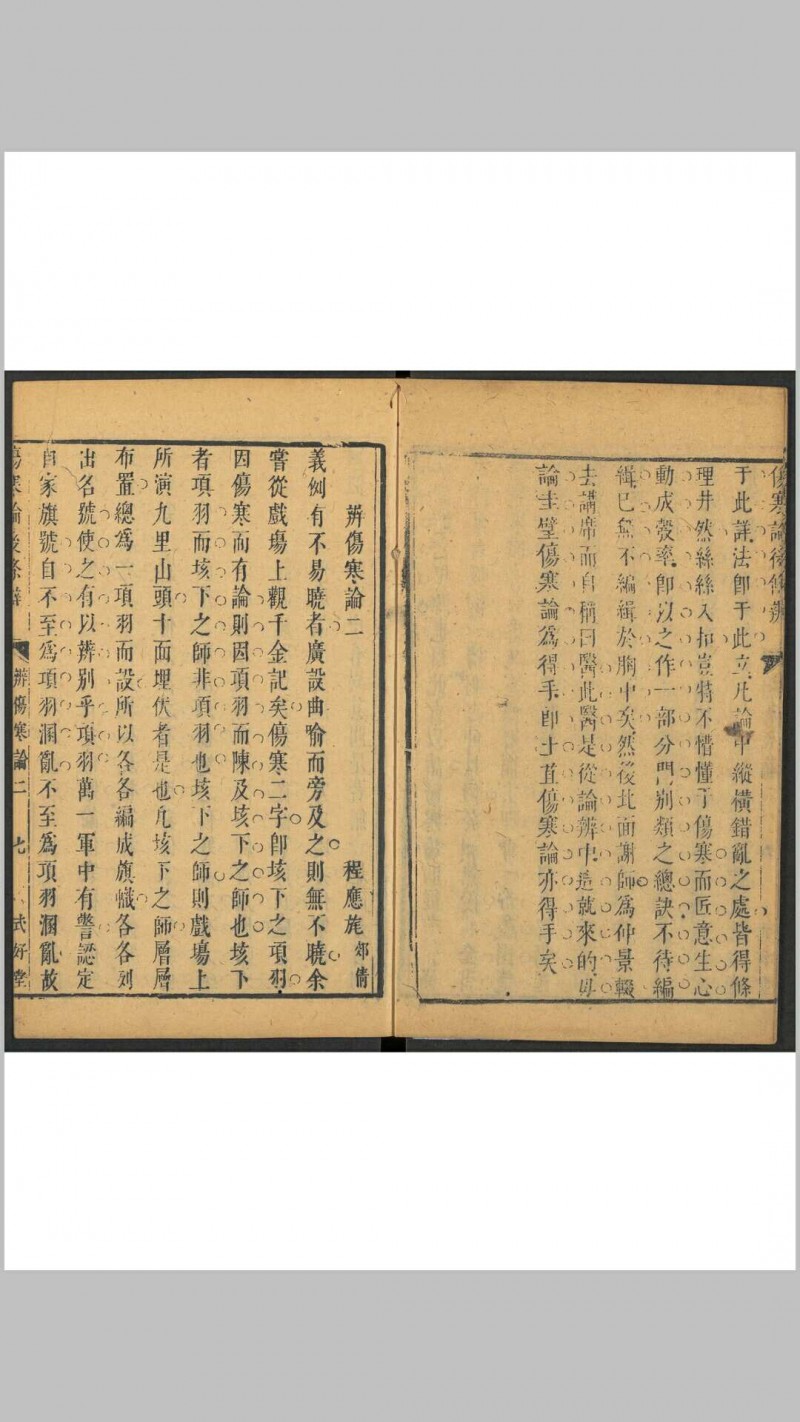 傷寒論後條辨
于此詳法即于此立凡論中縱橫錯亂之處皆得條
理井然絲絲入扣豈特不懵懂于傷寒而匠意生心
動成彀率即以之作一部分門別類之總訣不待編
緝已無不編緝於胸中矣然後北面謝師為仲景輟
去講席而自稱曰醫此醫是從論辨中這就來的毋
論圭璧傷寒論為得手即土苴傷寒論亦得手矣
辨傷寒論二
程應旄郊倩
義例有不易曉者廣設曲喻而旁及之則無不曉余
嘗從戲場上觀千金記矣傷寒二字即垓下之項羽
因傷寒而有論則因項羽而陳及垓下之師也垓下
者項羽而垓下之師非項羽也垓下之師則戲場上
所演九里山頭十面埋伏者是也凡垓下之師層層
布置總為一項羽而設所以各各編成旗幟各各列
出名號使之有以辨別乎項羽萬一軍中有警認定
自家旗號自不至為項羽溷亂不至為項羽溷亂故
傷寒論後條辨 辨傷寒論二 七 式好堂